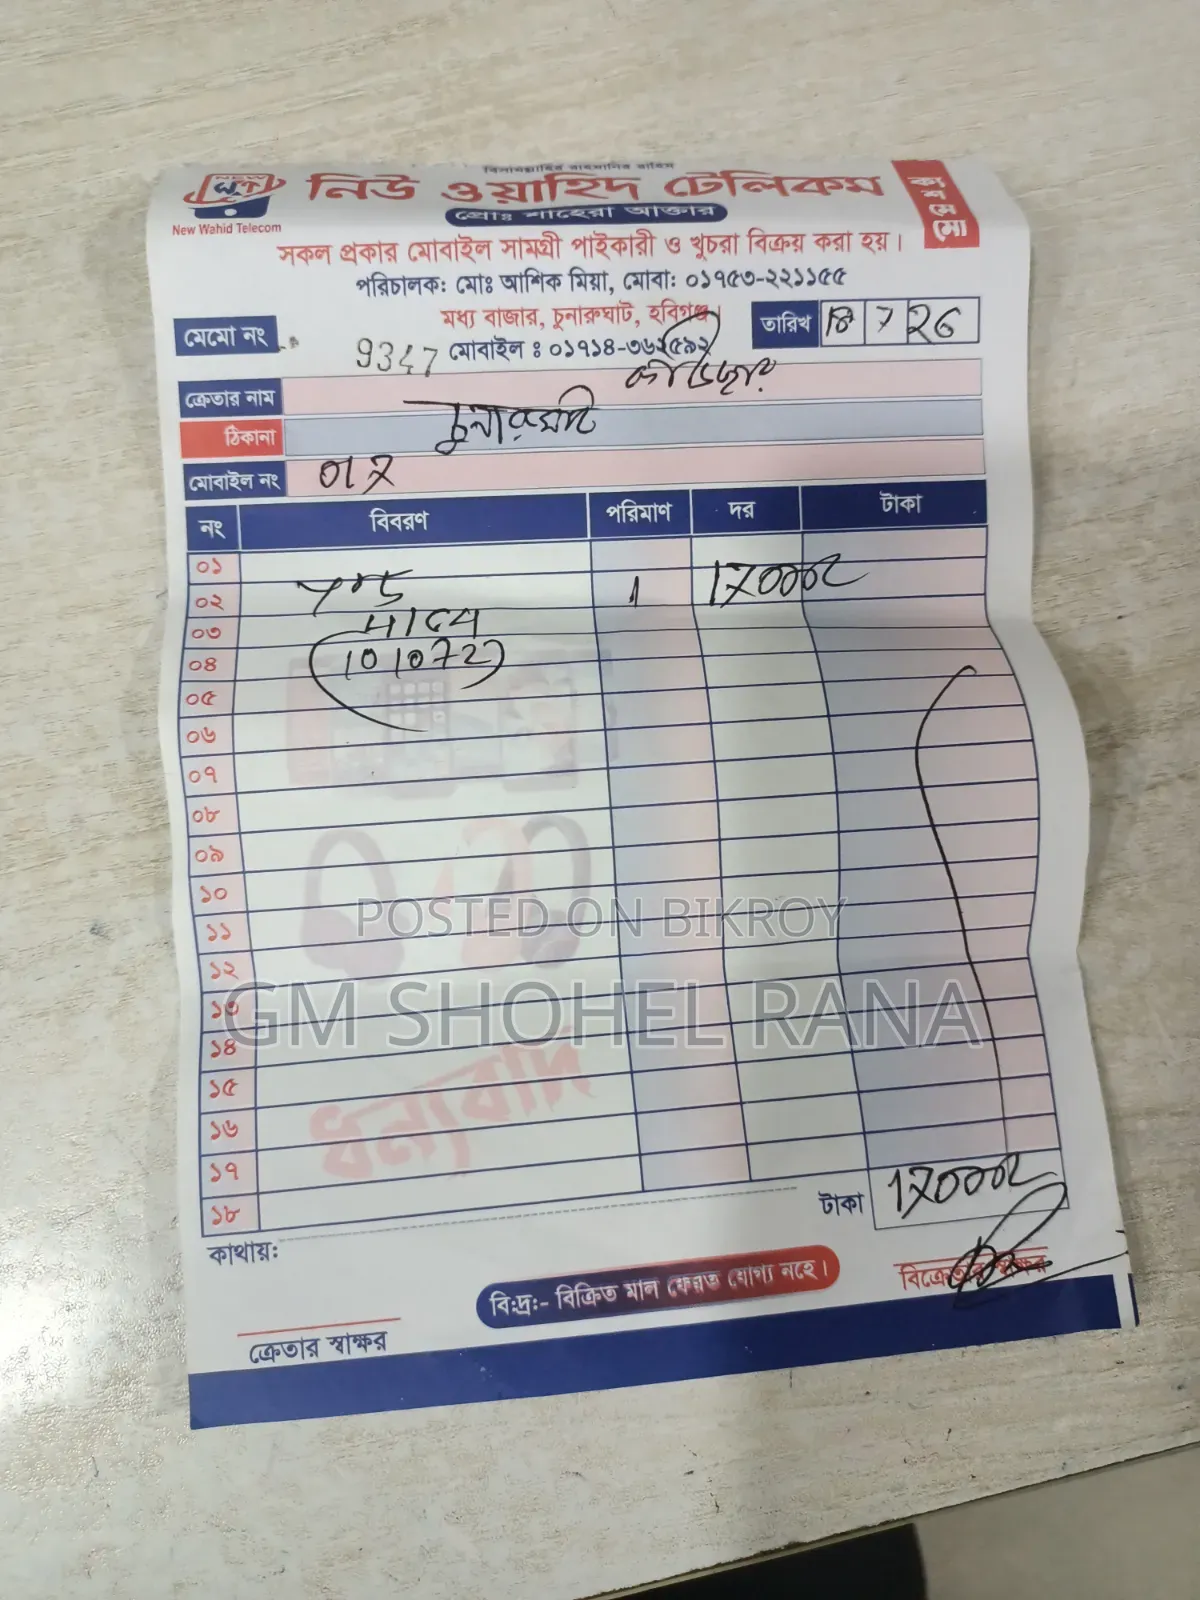 বিসমিল্লাহির রাহমানির রাহিম
NEW
New Wahid Telecom
নিউ ওয়াহিদ টেলিকম
ক্যাশ মেমো
প্রোঃ শাহেরা আক্তার
সকল প্রকার মোবাইল সামগ্রী পাইকারী ও খুচরা বিক্রয় করা হয়।
পরিচালক: মোঃ আশিক মিয়া, মোবা: ০১৭৫৩-২২১১৫৫
মধ্য বাজার, চুনারুঘাট, হবিগঞ্জ।
মেমো নং 9347 মোবাইল ঃ ০১৭১৪-৩৬২৫৯২ তারিখ 18 7 26
ক্রেতার নাম
ঠিকানা চুনারুঘাট
মোবাইল নং 017
নং বিবরণ পরিমাণ দর টাকা
০১
০২ 1 17000/=
০৩
০৪ 101072
০৫
০৬
০৭
০৮
০৯
১০
১১
POSTED ON BIKROY
১২
১৩
GM SHOHEL RANA
১৪
১৫
ধন্যবাদ
১৬
১৭
১৮
টাকা 17000/=
কাথায়:
বি:দ্র:- বিক্রিত মাল ফেরত যোগ্য নহে।
বিক্রেতার স্বাক্ষর
ক্রেতার স্বাক্ষর